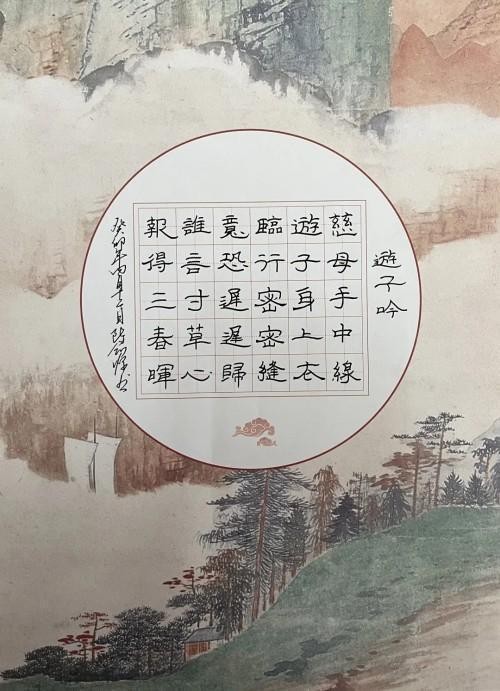 遊子吟
慈母手中線
遊子身上衣
臨行密密縫
意恐遲遲歸
誰言寸草心
報得三春暉
癸卯年